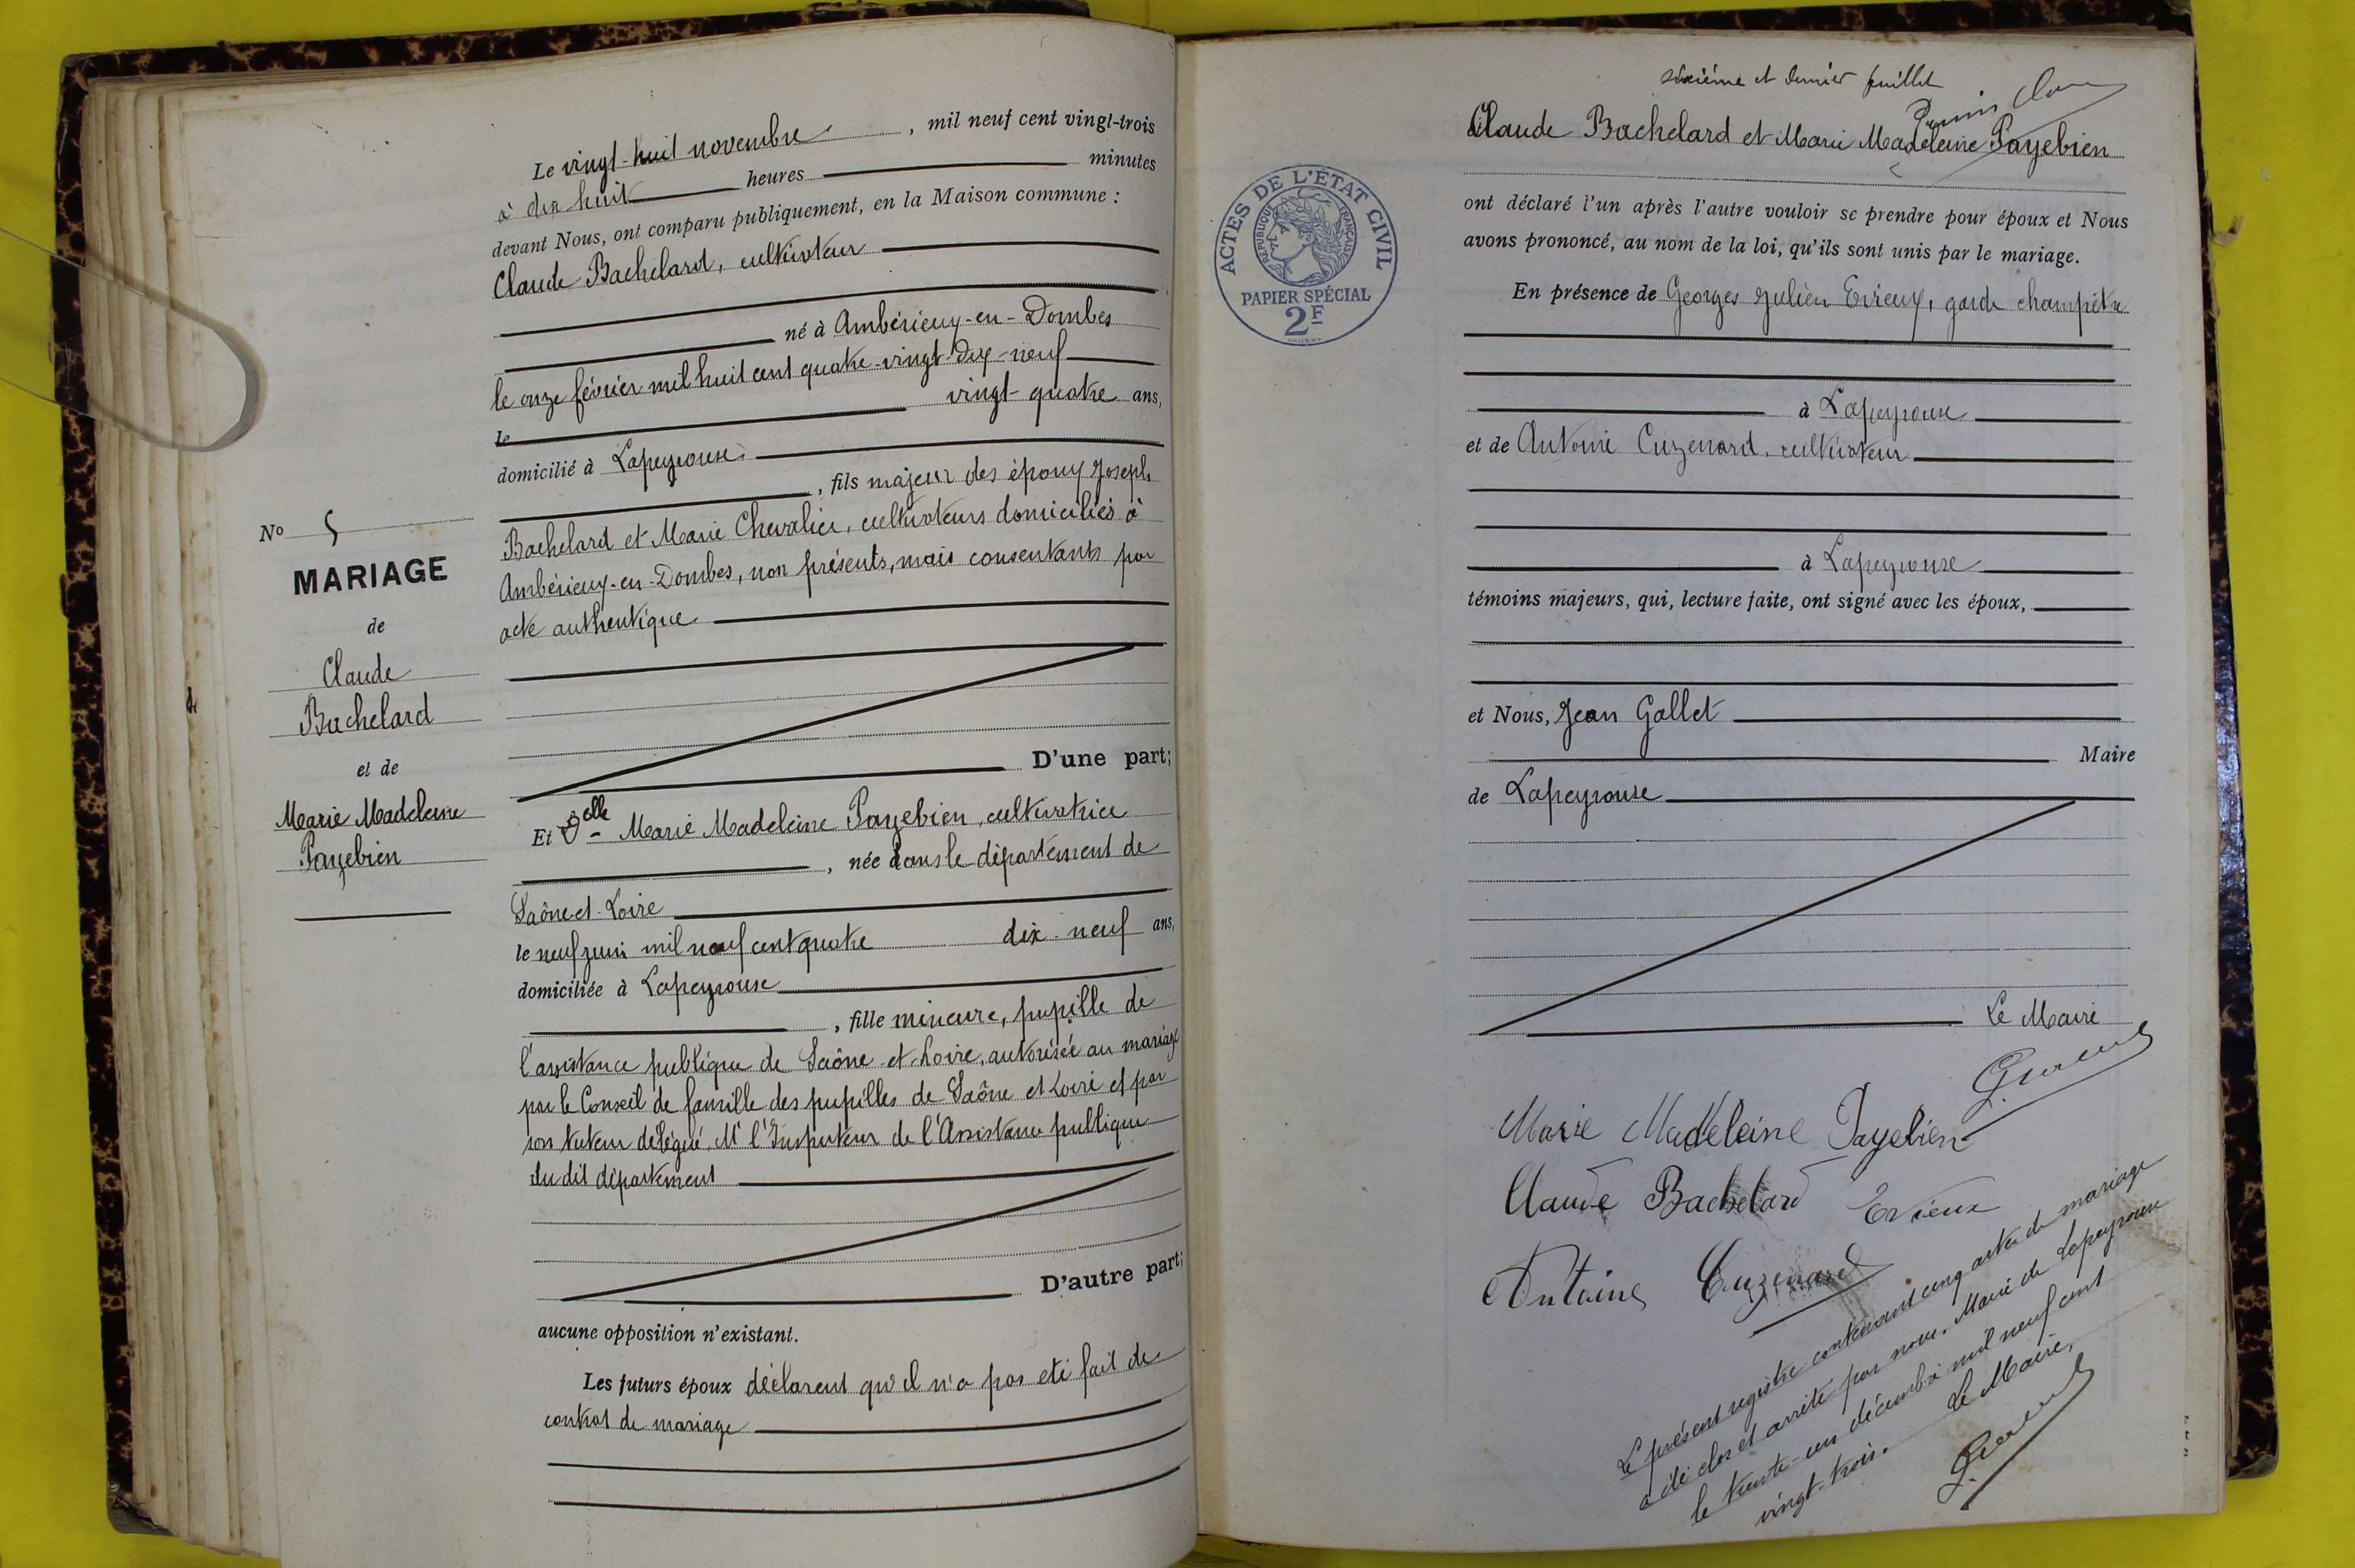 Le vingt-huit novembre, mil neuf cent vingt-trois
à dix huit heures minutes
devant Nous, ont comparu publiquement, en la Maison commune :
Claude Bachelard, cultivateur
né à Ambérieux-en-Dombes
le onze février mil huit cent quatre-vingt-dix-neuf
vingt-quatre ans,
le
domicilié à Lapeyrouse
, fils majeur des époux Joseph
Bachelard et Marie Chevalier, cultivateurs domiciliés à
Ambérieux-en-Dombes, non présents, mais consentants par
acte authentique.
D'une part;
Et Delle Marie Madeleine Payebien, cultivatrice
, née dans le département de
Saône-et-Loire
le neuf juin mil neuf cent quatre dix-neuf ans,
domiciliée à Lapeyrouse
, fille mineure, pupille de
l'assistance publique de Saône-et-Loire, autorisée au mariage
par le Conseil de famille des pupilles de Saône et Loire et par
son tuteur délégué, Mr l'Inspecteur de l'Assistance publique
du dit département
D'autre part;
aucune opposition n'existant.
Les futurs époux déclarent qu'il n'a pas été fait de
contrat de mariage
No 5
MARIAGE
de
Claude
Bachelard
et de
Marie Madeleine
Payebien
sixième et dernier feuillet
Claude Bachelard et Marie Madeleine Payebien
ont déclaré l'un après l'autre vouloir se prendre pour époux et Nous
avons prononcé, au nom de la loi, qu'ils sont unis par le mariage.
En présence de Georges Julien Evieux, garde champêtre
à Lapeyrouse
et de Antoine Cuzenard, cultivateur
à Lapeyrouse
témoins majeurs, qui, lecture faite, ont signé avec les époux,
et Nous, Jean Gallet
Maire
de Lapeyrouse
Le Maire
Marie Madeleine Payebien
Claude Bachelard Evieux
Antoine Cuzenard
Le présent registre contenant cinq actes de mariage
a été clos et arrêté par nous, Maire de Lapeyrouse
le trente-un décembre mil neuf cent
vingt-trois. Le Maire,
ACTES DE L'ÉTAT CIVIL
RÉPUBLIQUE FRANÇAISE
PAPIER SPÉCIAL
2F